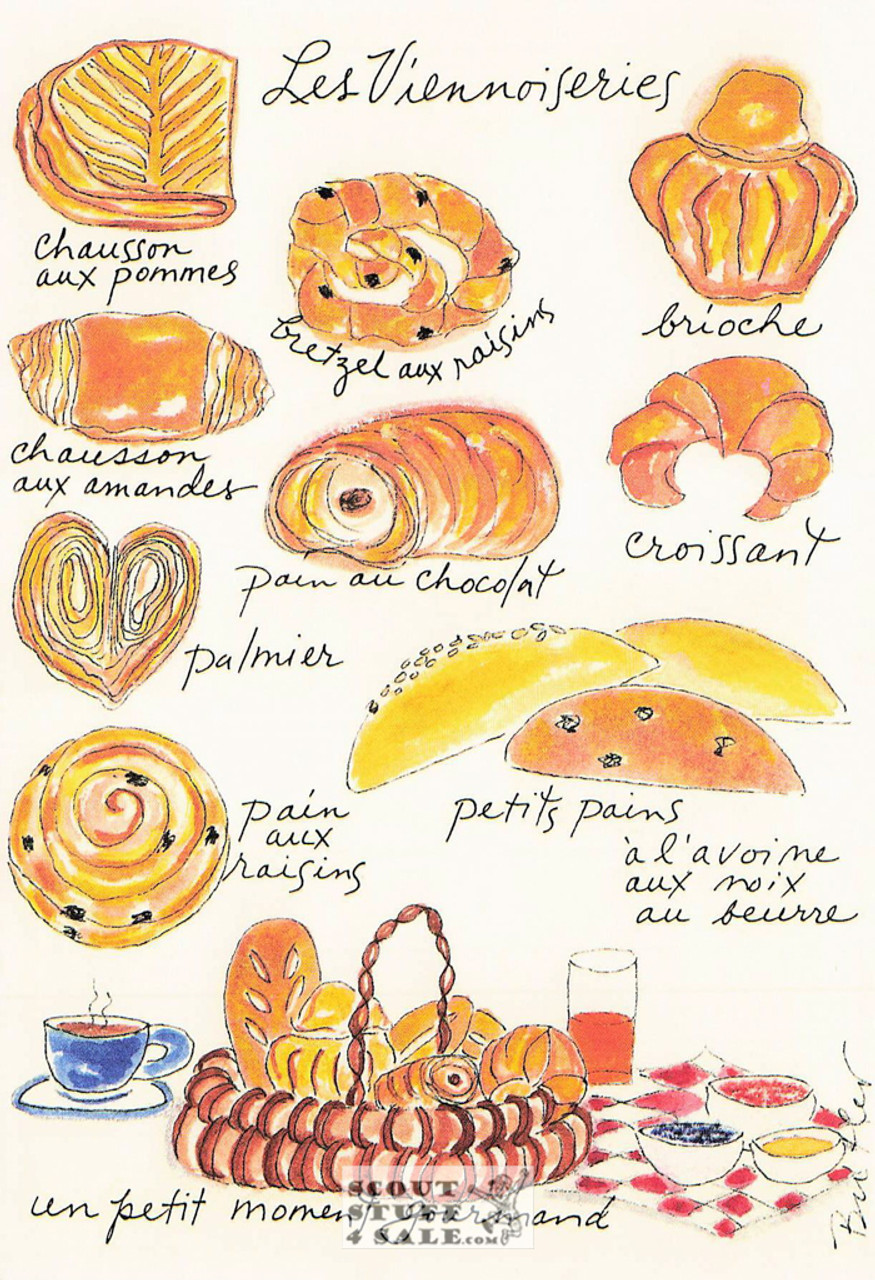 Les Viennoiseries
chausson
aux pommes
bretzel aux raisins
brioche
chausson
aux amandes
pain au chocolat
croissant
palmier
petits pains
à l'avoine
aux noix
au beurre
pain
aux
raisins
un petit moment gourmand
SCOUT
STUFF
4 SALE.com